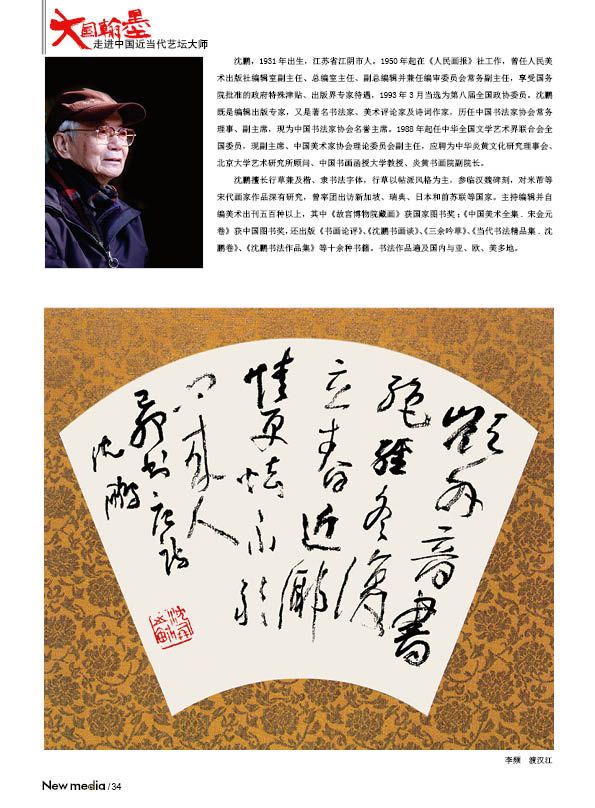 大国翰墨
走进中国近当代艺坛大师
沈鹏，1931年出生，江苏省江阴市人。1950年起在《人民画报》社工作，曾任人民美
术出版社编辑室副主任、总编室主任、副总编辑并兼任编审委员会常务副主任，享受国务
院批准的政府特殊津贴、出版界专家待遇，1993年3月当选为第八届全国政协委员。沈鹏
既是编辑出版专家，又是著名书法家、美术评论家及诗词作家，历任中国书法家协会常务
理事、副主席，现为中国书法家协会名誉主席。1988年起任中华全国文学艺术界联合会全
国委员，现副主席、中国美术家协会理论委员会副主任，应聘为中华炎黄文化研究理事会、
北京大学艺术研究所顾问、中国书画函授大学教授、炎黄书画院副院长。
沈鹏擅长行草兼及楷、隶书法字体，行草以帖派风格为主，参临汉魏碑刻，对米芾等
宋代画家作品深有研究，曾率团出访新加坡、瑞典、日本和前苏联等国家。主持编辑并自
编美术出刊五百种以上，其中《故宫博物院藏画》获国家图书奖；《中国美术全集．宋金元
卷》获中国图书奖，还出版《书画论评》、《沈鹏书画谈》、《三余吟草》、《当代书法精品集．沈
鹏卷》、《沈鹏书法作品集》等十余种书籍。书法作品遍及国内与亚、欧、美多地。
嶺外音書
絕經冬復
立春近鄉
情更怯不敢
问来人
己卯书
沈鹏
李频 渡汉江
New media /34